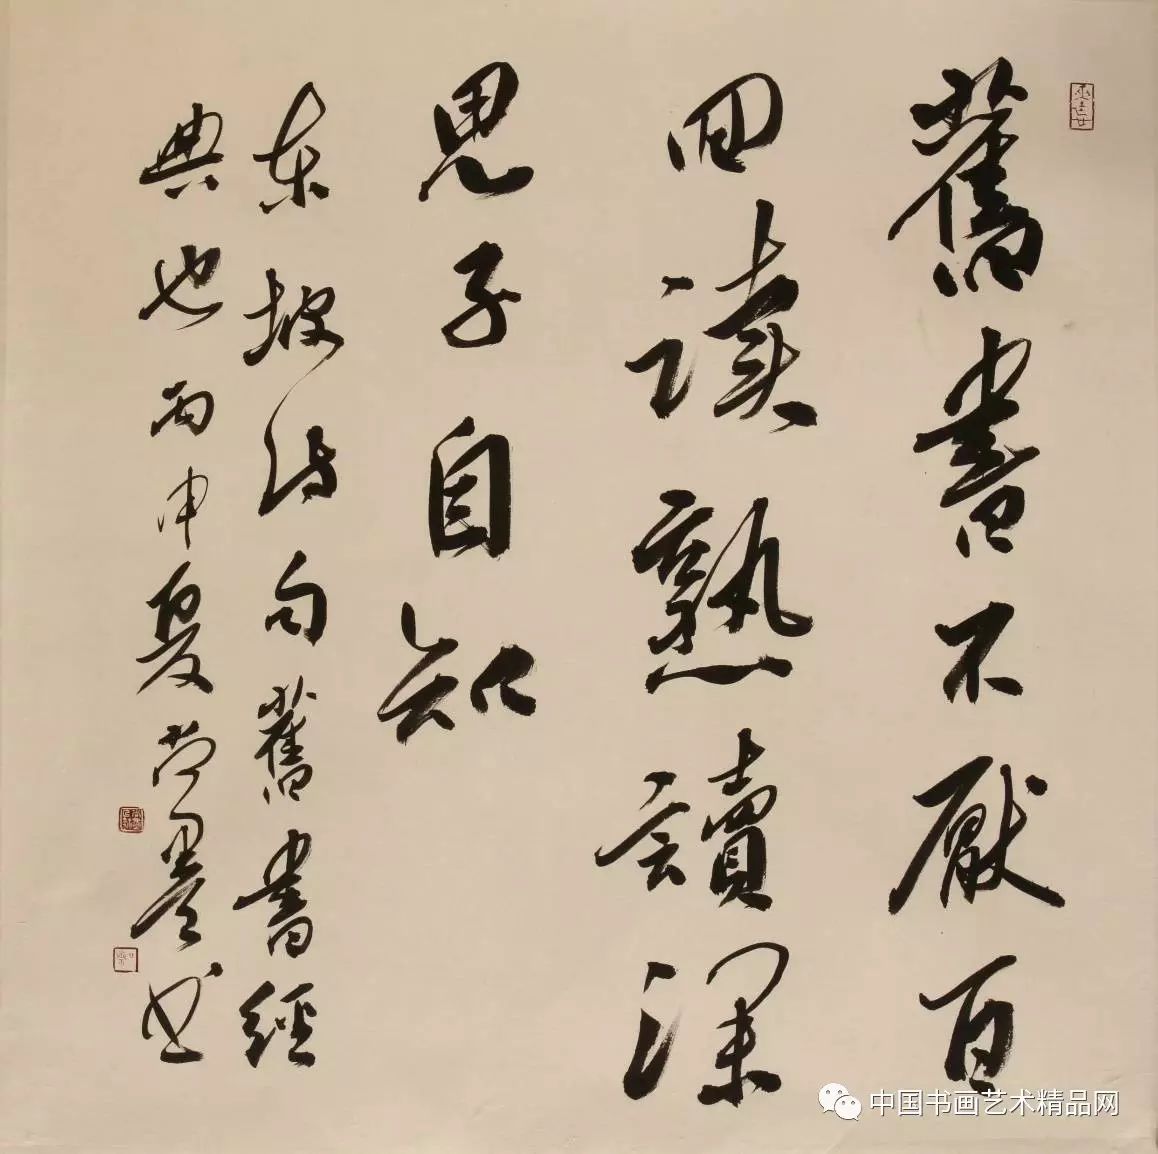 舊書不厭百
回读熟讀深
思子自知
东坡诗句舊書經
典也丙申夏尚墨书
中国书画艺术精品网